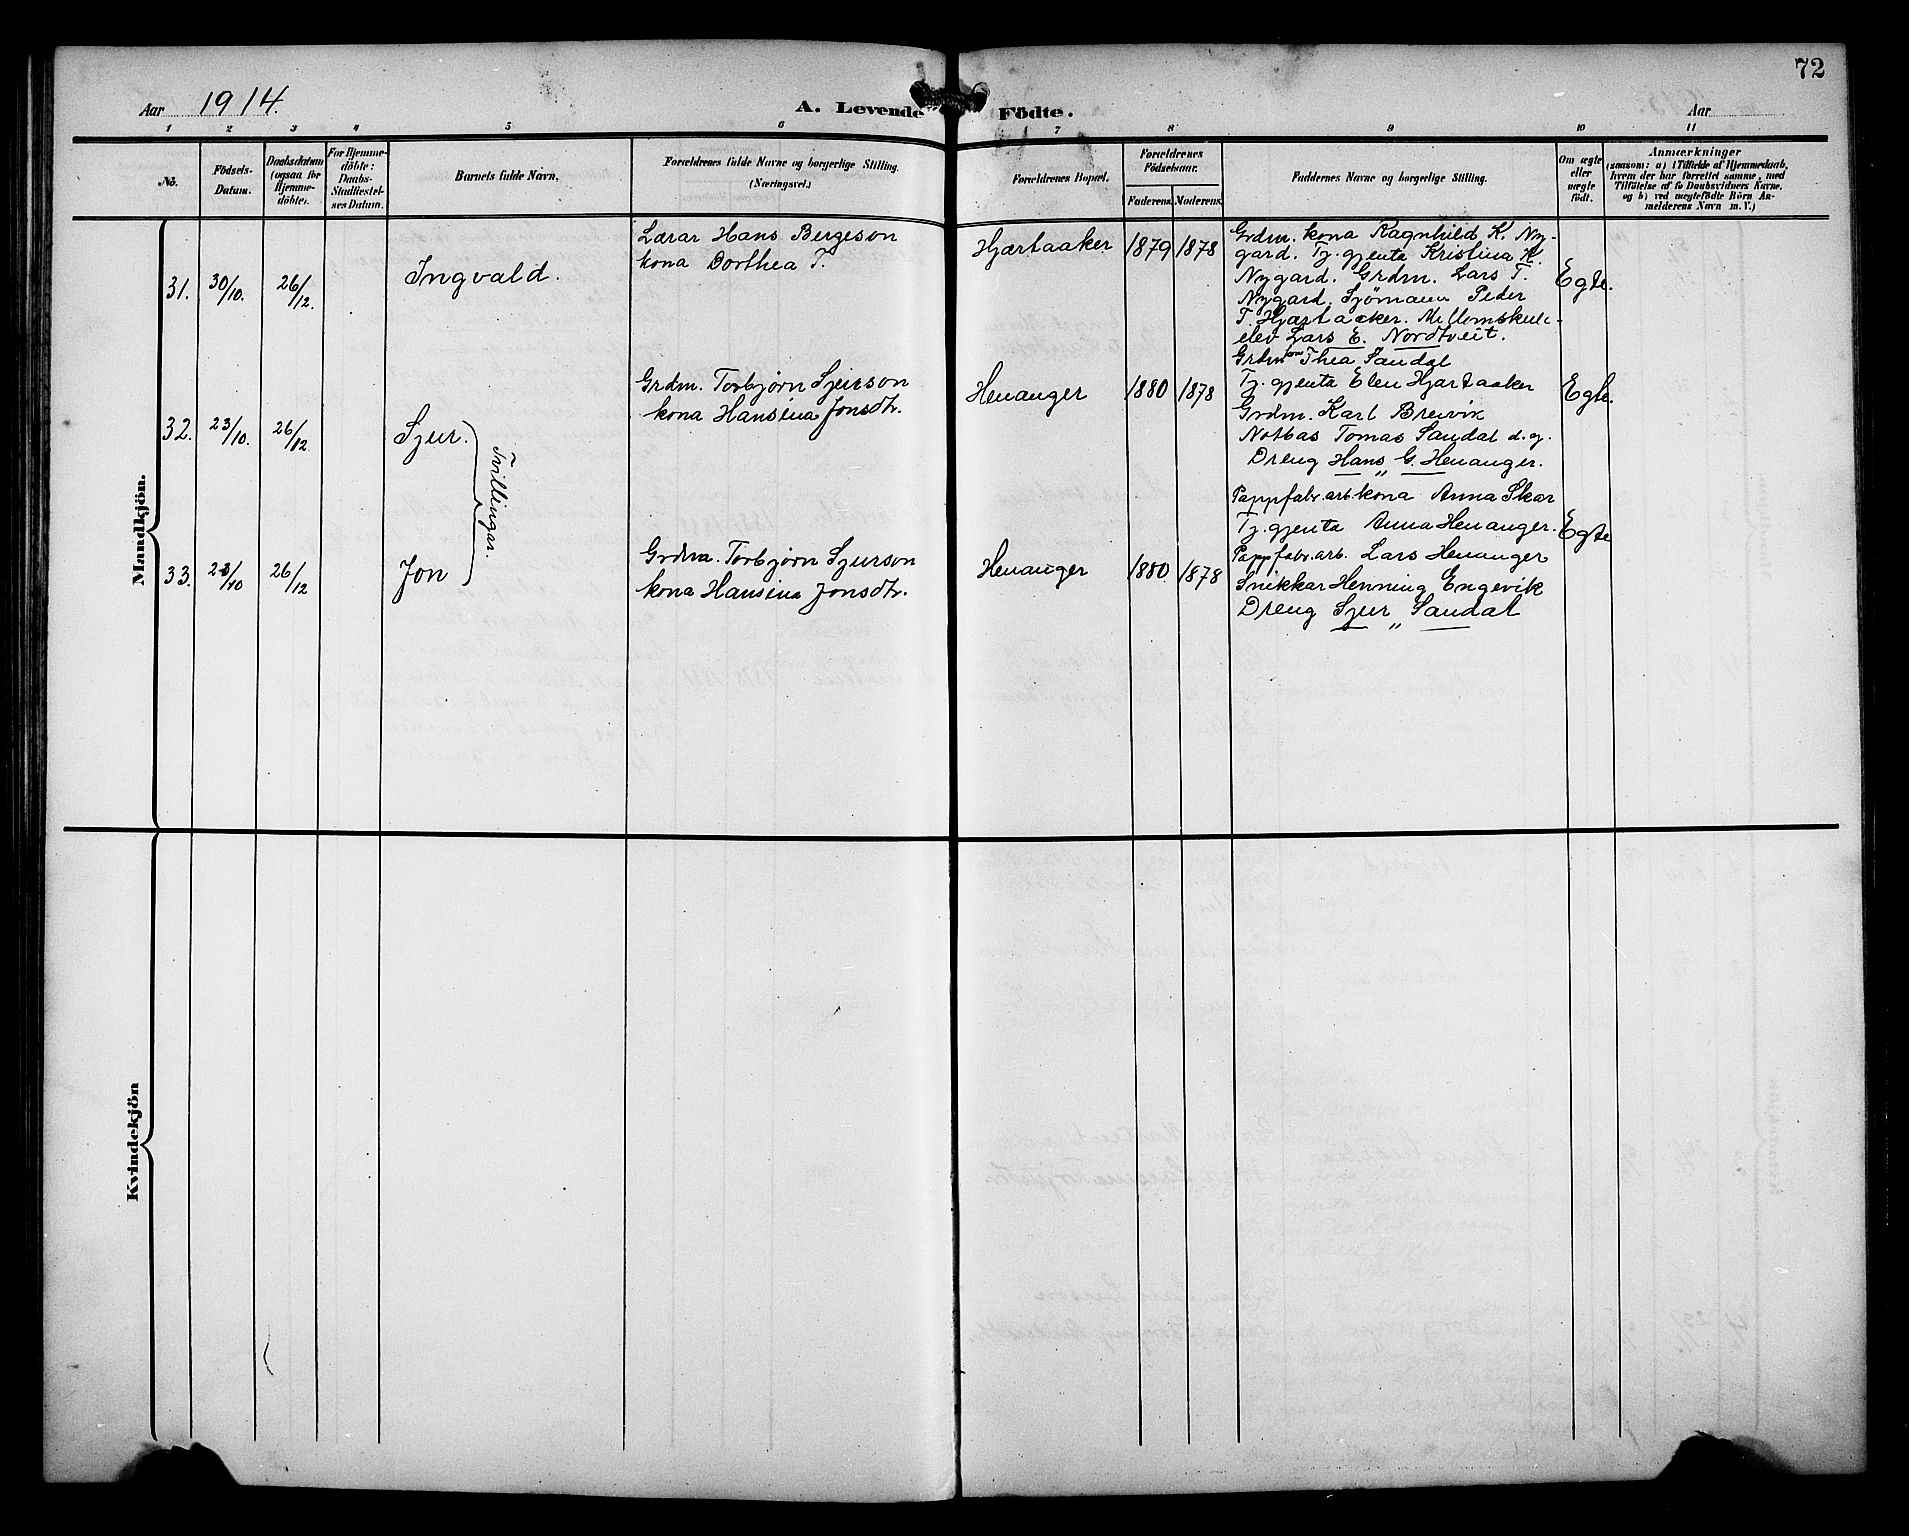 72
Aar 1914.
A. Levende Födte.
Aar
1 2 3 4 5 6 7 8 9 10 11
No.
Födsels-
Datum.
Daabsdatum
(ogsaa for
Hjemme-
döbte).
For Hjemme-
döbte:
Daabs-
Stadfæstel-
ses Datum.
Barnets fulde Navn.
Forældrenes fulde Navne og borgerlige Stilling.
(Næringsvei.)
Forældrenes Bopæl.
Forældrenes
Födselsaar.
Faderens. Moderens.
Faddernes Navne og borgerlige Stilling.
Om ægte
eller
uægte
födt.
Anmærkninger
(saasom: a) i Tilfælde af Hjemmedaab,
hvem der har forrettet samme, med
Tilföielse af to Daabsvidners Navne,
og b) ved uægtefödte Börn An-
melderens Navn m. V.)
Mandkjön.
31. 30/10. 26/12. Ingvald.
Lærar Hans Bergeson
kona Dorthea T.
Hjartaaker 1879 1878
Grdm. kona Ragnhild K. Ny-
gard. Tj. gjenta Kristina K.
Nygard. Grdm. Lars T.
Nygard. Sjömann Peder
T. Hjartaaker. Mellomskule-
elev Lars E. Nordtveit.
Egte.
32. 23/10. 26/12 Sjur.
Tvillingar.
Grdm. Torbjørn Sjurson
kona Hansina Jonsdtr.
Henanger 1880 1878
Grdm. kona Thea Sandal
Tj. gjenta Elen Hjartaaker
Grdm. Karl Breivik
Notbas Tomas Sandal d.y.
Dreng Hans G. Henanger.
Egte.
33. 23/10 26/12 Jon
Grdm. Torbjørn Sjurson
kona Hansina Jonsdtr.
Henanger 1880 1878
Pappfabr.arb.kona Anna Skar
Tj. gjenta Anna Henanger.
Pappfabr.arb. Lars Henanger
Snikkar Henning Engevik
Dreng Sjur „ Sandal
Egte
Kvindekjön